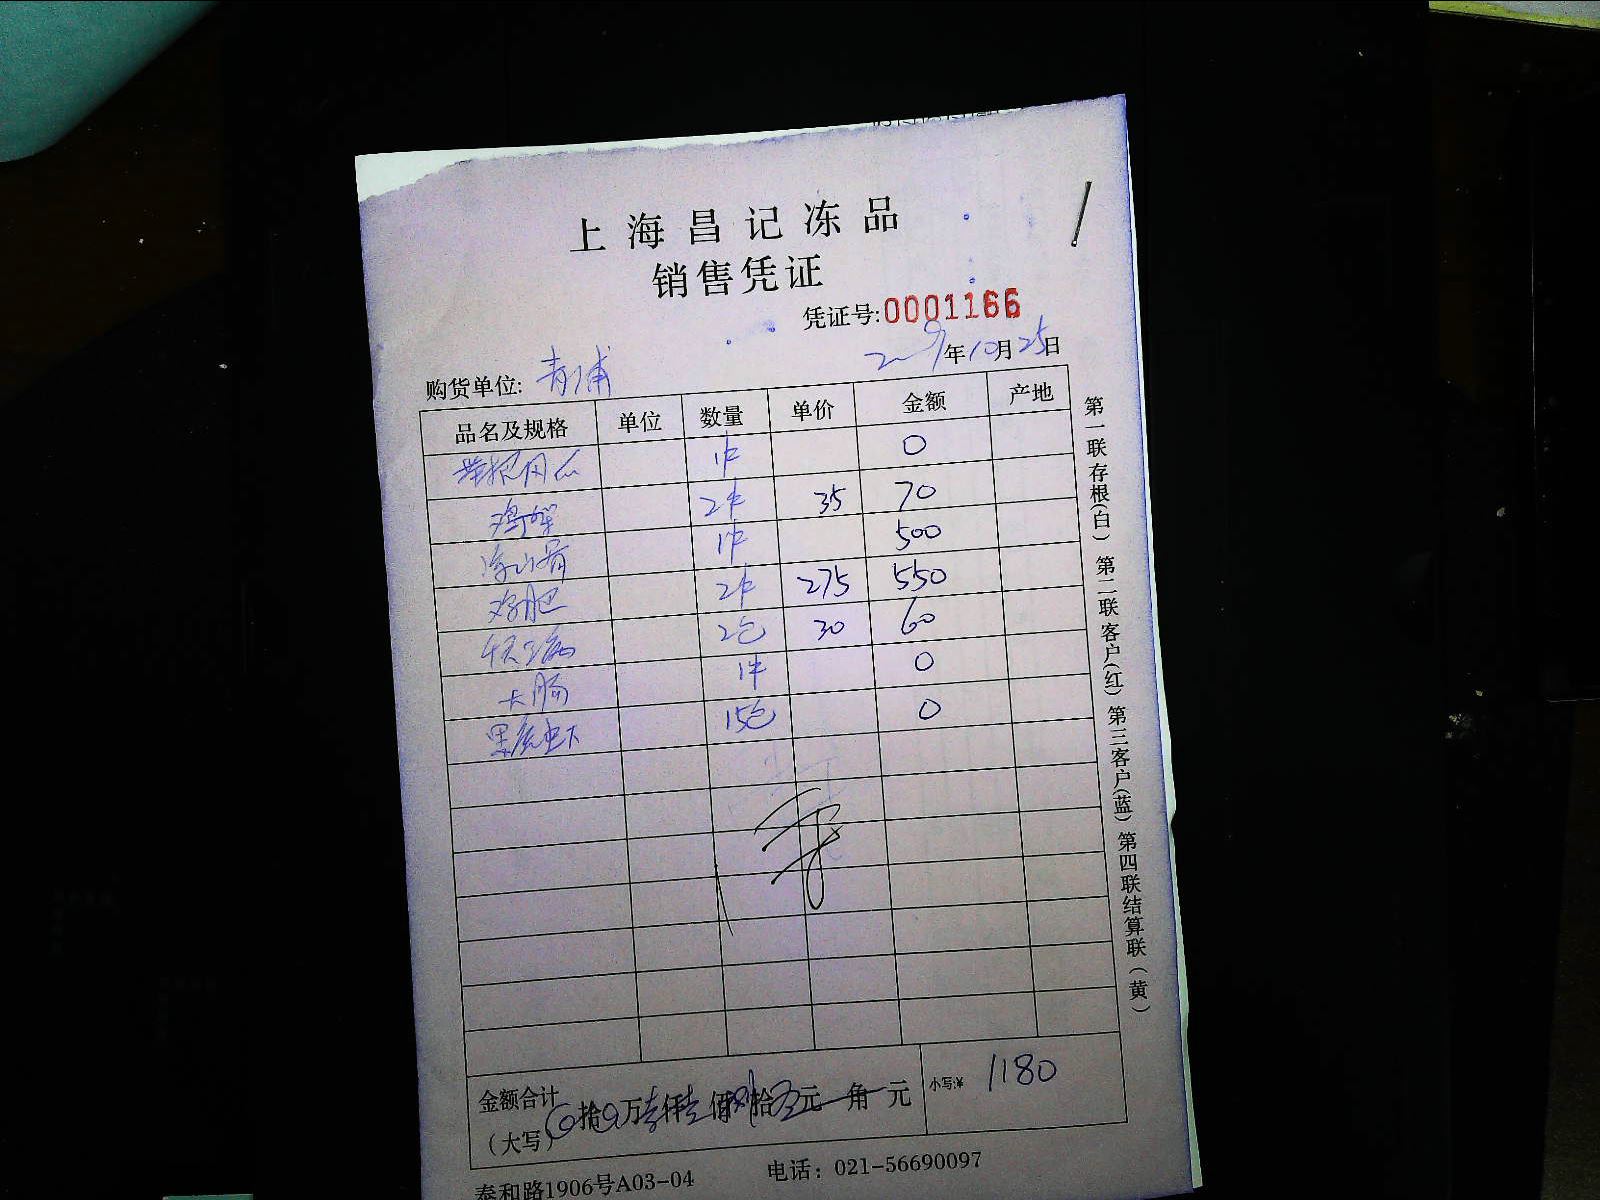 上海昌记冻品
销售凭证
凭证号:0001166
2009年10月25日
购货单位: 青浦
品名及规格 单位 数量 单价 金额 产地
1件 0
2件 35 70
1件 500
2件 275 550
2包 30 60
大肠 1件 0
黑虎虾 15包 0
金额合计
(大写) 拾 万壹仟壹佰捌拾 元 角 元 小写:¥ 1180
泰和路1906号A03-04 电话: 021-56690097
第一联存根(白) 第二联客户(红) 第三客户(蓝) 第四联结算联(黄)